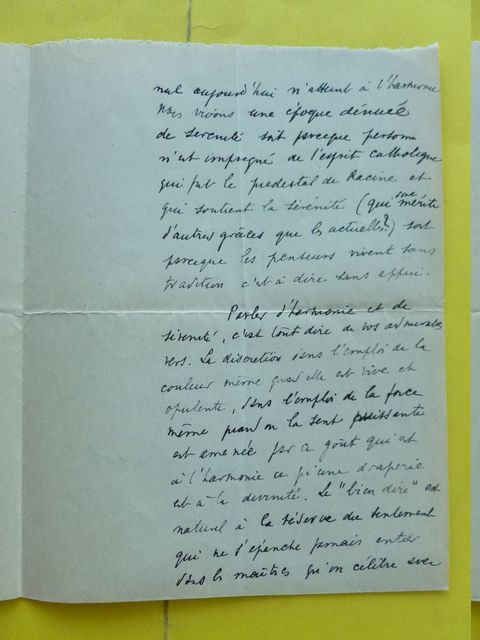 nul aujourd'hui n'atteint à l'harmonie
Nous vivons une époque dénuée
de sérénité soit parceque personne
n'est imprégné de l'esprit catholique
qui fut le piedestal de Racine et
qui soutient la sérénité (qui donc mérite
d'autres grâces que les actuelles?) soit
parceque les penseurs vivent sans
tradition c'est à dire sans appui.
Parler d'harmonie et de
sérénité, c'est tout dire de vos admirables
vers. La discretion dans l'emploi de la
couleur même quand elle est vive et
opulente, dans l'emploi de la force
même quand on la sent puissante
est amenée par ce goût qui est
à l'harmonie ce qu'une draperie
est à la divinité. Le "bien dire" est
naturel à la réserve du sentiment
qui ne s'épanche jamais entier
dans les maîtres qu'on célèbre avec